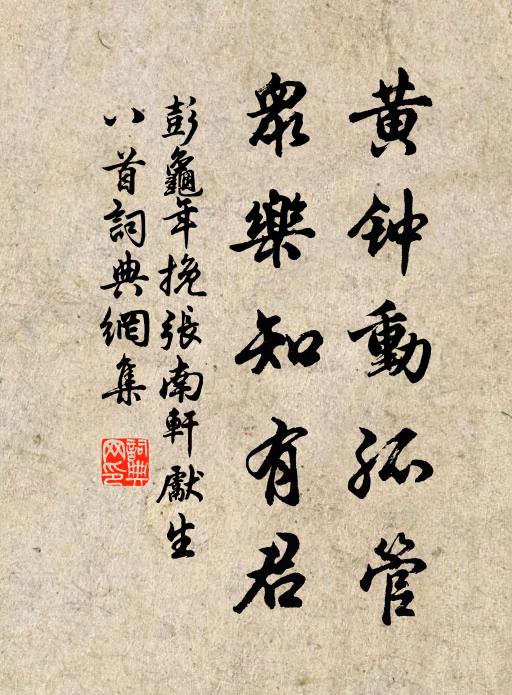 黄钟動孤管
眾樂知有君
彭龜年挽張南軒獻生
八首詞典網集
詞典网印